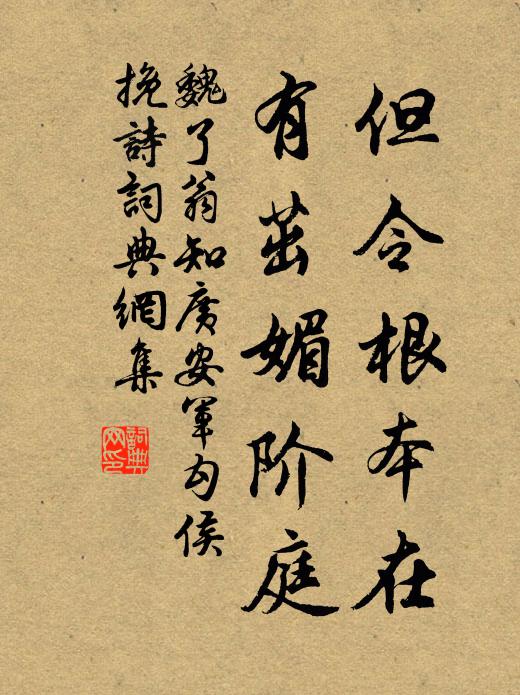 但令根本在
有茁媚阶庭
魏了翁知廣安軍勾侯
挽詩詞典網集
詞典
网印